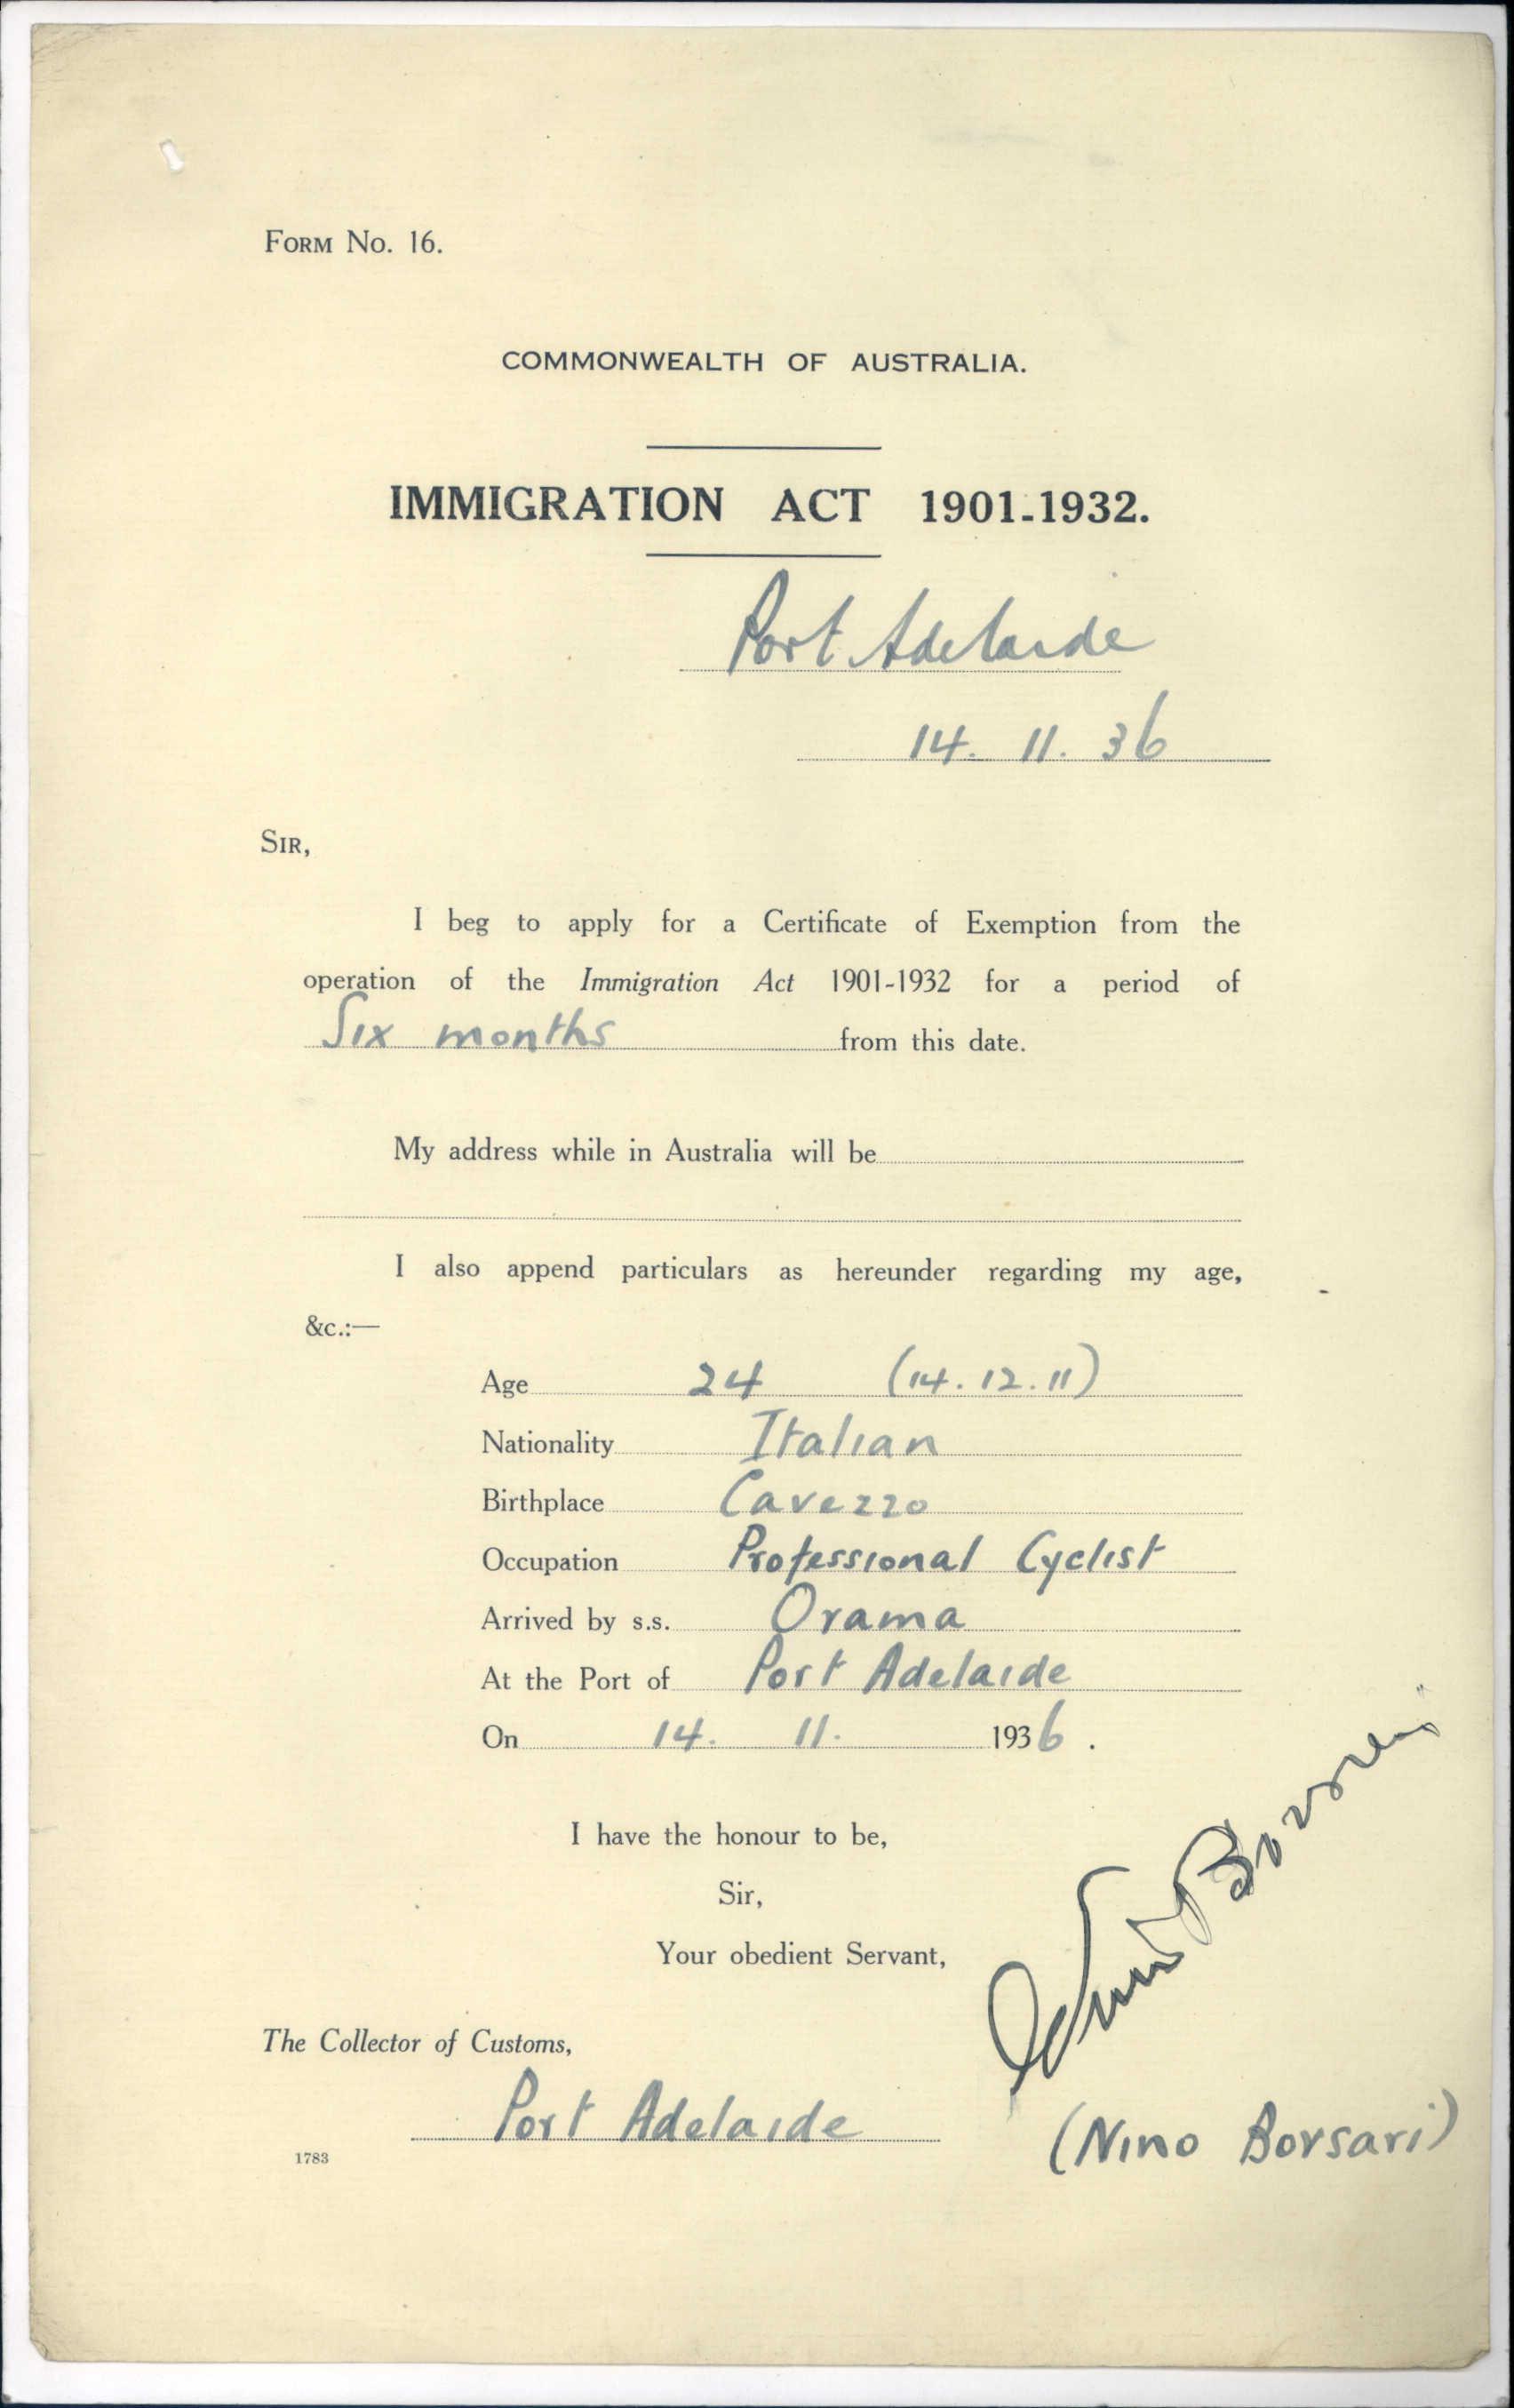 FORM NO. 16.
COMMONWEALTH OF AUSTRALIA.
IMMIGRATION ACT 1901-1932.
Port Adelaide
14. 11. 36
SIR,
I beg to apply for a Certificate of Exemption from the
operation of the Immigration Act 1901-1932 for a period of
Six months from this date.
My address while in Australia will be
I also append particulars as hereunder regarding my age,
&c.:—
Age 24 (14.12.11)
Nationality Italian
Birthplace Cavezzo
Occupation Professional Cyclist
Arrived by s.s. Orama
At the Port of Port Adelaide
On 14. 11. 1936.
I have the honour to be,
Sir,
Your obedient Servant,
Nino Borsari
The Collector of Customs,
Port Adelaide
(Nino Borsari)
1783